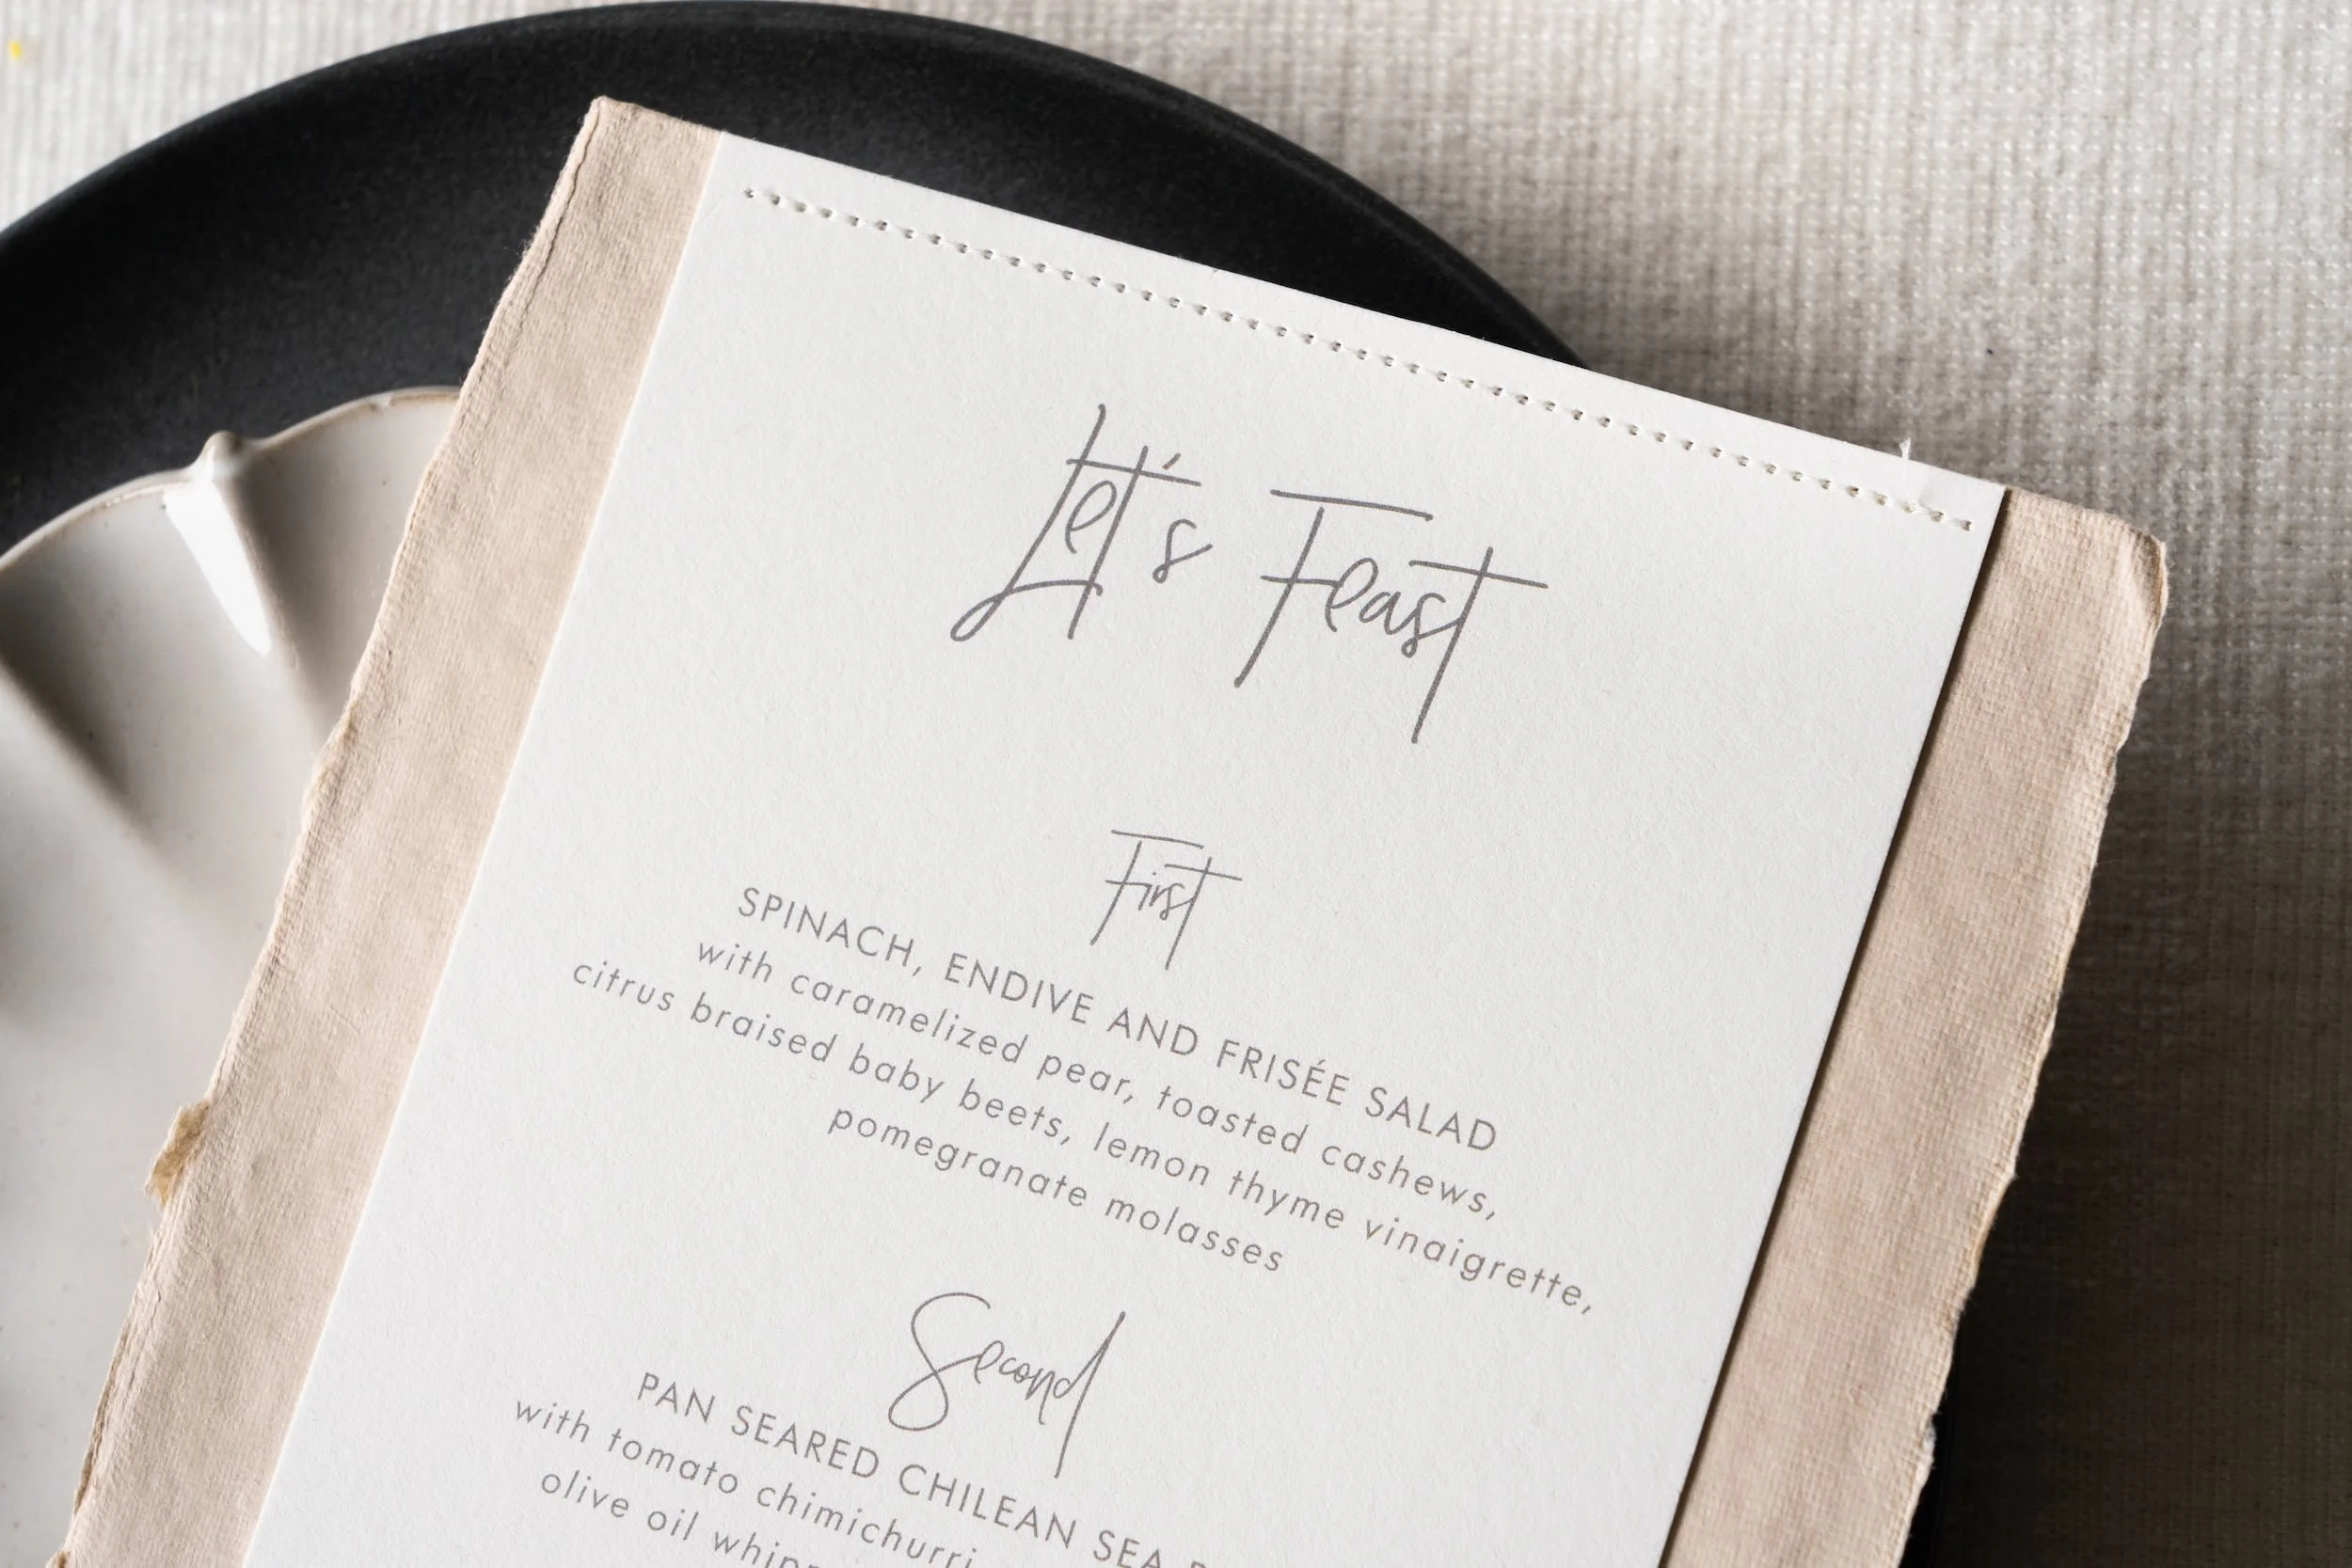 Let's Feast
First
SPINACH, ENDIVE AND FRISÉE SALAD
with caramelized pear, toasted cashews,
citrus braised baby beets, lemon thyme vinaigrette,
pomegranate molasses
Second
PAN SEARED CHILEAN SEA
with tomato chimichurri
olive oil